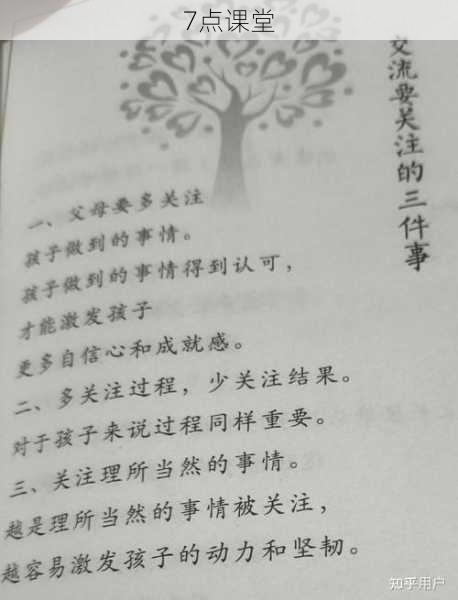 7点课堂
交流要关注的三件事
一、父母要多关注
孩子做到的事情。
孩子做到的事情得到认可，
才能激发孩子
更多自信心和成就感。
二、多关注过程，少关注结果。
对于孩子来说过程同样重要。
三、关注理所当然的事情。
越是理所当然的事情被关注，
越容易激发孩子的动力和坚韧。
知乎用户